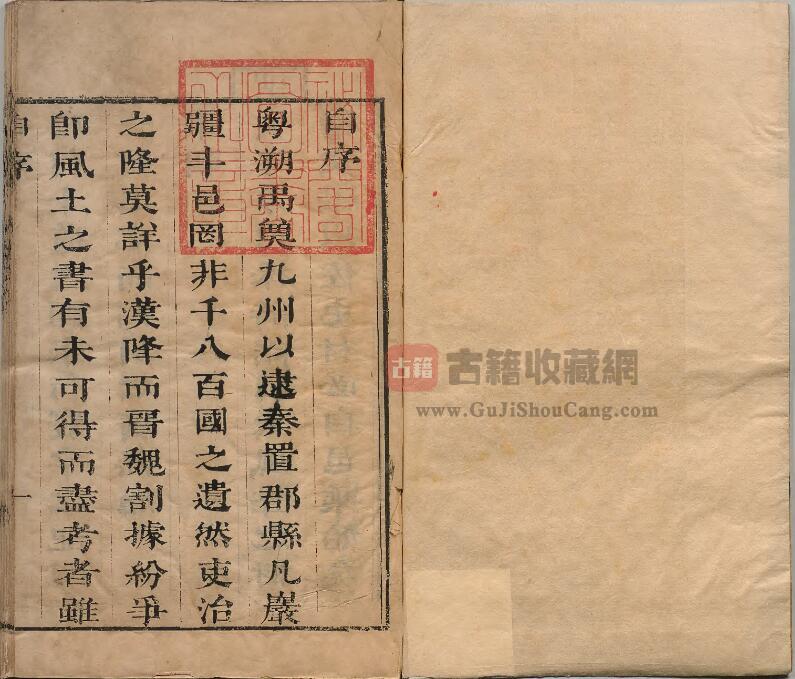 自序
粤溯禹奠九州以逮秦置郡縣凡巖
疆斗邑罔非千八百國之遺然吏治
之隆莫詳乎漢降而晋魏割據紛爭
卽風土之書有未可得而盡考者雖
自序
一
古籍
古籍收藏網
www.GuJiShouCang.com